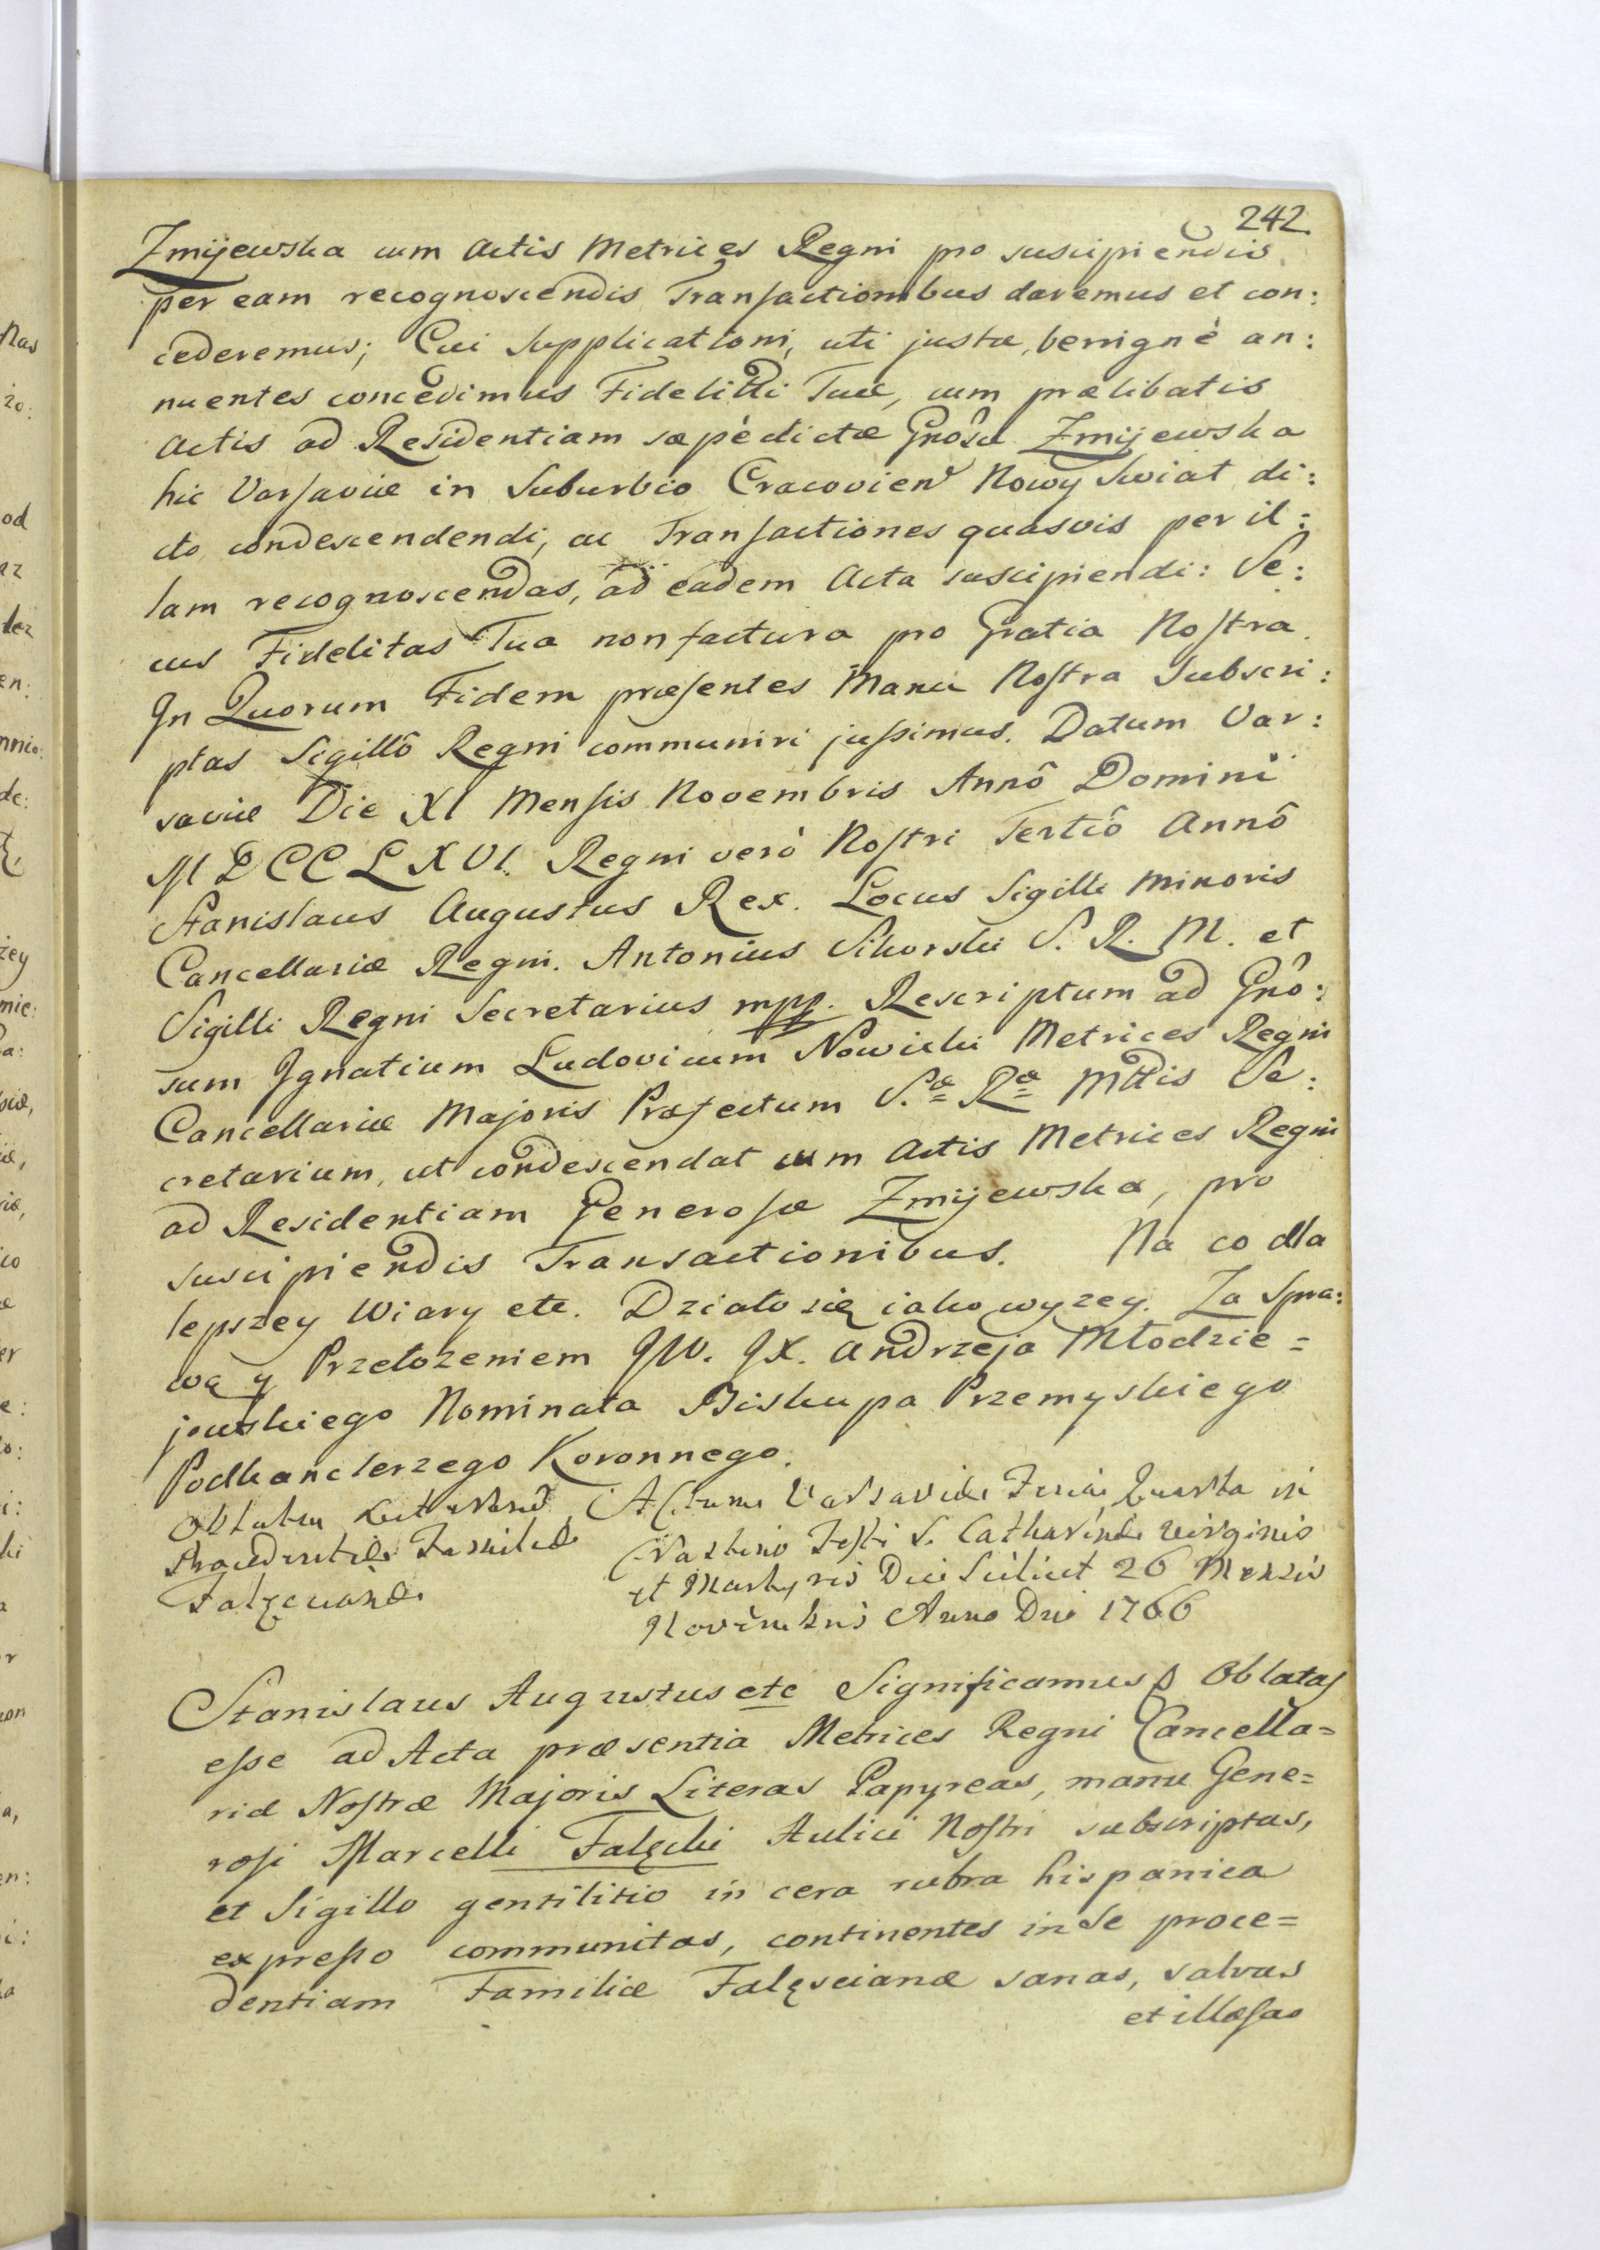 242.
Zmijewska cum Actis Metrices Regni pro suscipiendis
per eam recognoscendis Transactionibus daremus et con:
cederemus; Cui Supplicationi, uti justæ, benignè an:
nuentes concedimus Fidelitti Tuæ, cum prælibatis
Actis ad Residentiam sæpèdictæ Gnôsæ Zmijewska
hic Varsaviæ in Suburbio Cracovien Nowy Swiat di:
cto condescendendi, ac Transactiones quasvis per il:
lam recognoscendas, ad eadem Acta suscipiendi: Se:
cus Fidelitas Tua non factura pro Gratia Nostra.
In Quorum Fidem præsentes Manu Nostra Subscri:
ptas Sigillô Regni communiri jussimus. Datum Var:
saviæ Die XI Mensis Novembris Annô Domini
MDCCLXVI. Regni verò Nostri Tertiô Annô
Stanislaus Augustus Rex. Locus Sigilli Minoris
Cancellariæ Regni. Antonius Sikorski S. R. M. et
Sigilli Regni Secretarius mpp. Rescriptum ad Gnô:
sum Ignatium Ludovicum Nowicki Metrices Regni
Cancellariæ Majoris Præfectum S.æ Ræ Mttis Se:
cretarium, ut condescendat cum Actis Metrices Regni
ad Residentiam Generosæ Zmijewska, pro
suscipiendis Transactionibus. Na co dla
lepszey Wiary etc. Działo się iako wyzey. Za Spra:
wą y Przełozeniem JW. JX. Andrzeja Młodzie=
jowskiego Nominata Biskupa Przemyskiego
Podkanclerzego Koronnego.
Oblata Procedentiæ Familiæ
Falęcianæ
Actum Varsaviæ Feria Quarta in
Crastino Festi S. Catharinæ Virginis
et Martyris Die Scilicet 26 Mensis
Novembris Anno Dni 1766
Stanislaus Augustus etc Significamus Oblatas
esse ad Acta præsentia Metrices Regni Cancella=
riæ Nostræ Majoris Literas Papyreas, manu Gene=
rosi Marcelli Falęcki Aulici Nostri subscriptas,
et Sigillo gentilitio in cera rubra hispanica
expresso communitas, continentes in Se proce=
dentiam Familiæ Falęscianæ sanas, salvas
et illæsas